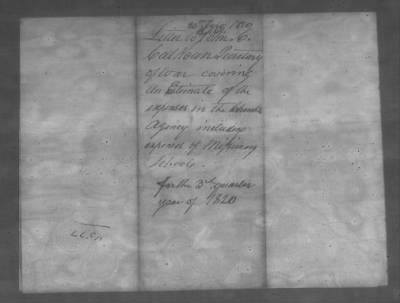 Letter to John C.
Calhoun Secretary
of war covering
An Estimate of the
expenses in the Cherokee
Agency including
expences of Missionary
Schools.
for the 3d. quarter
year of 1820